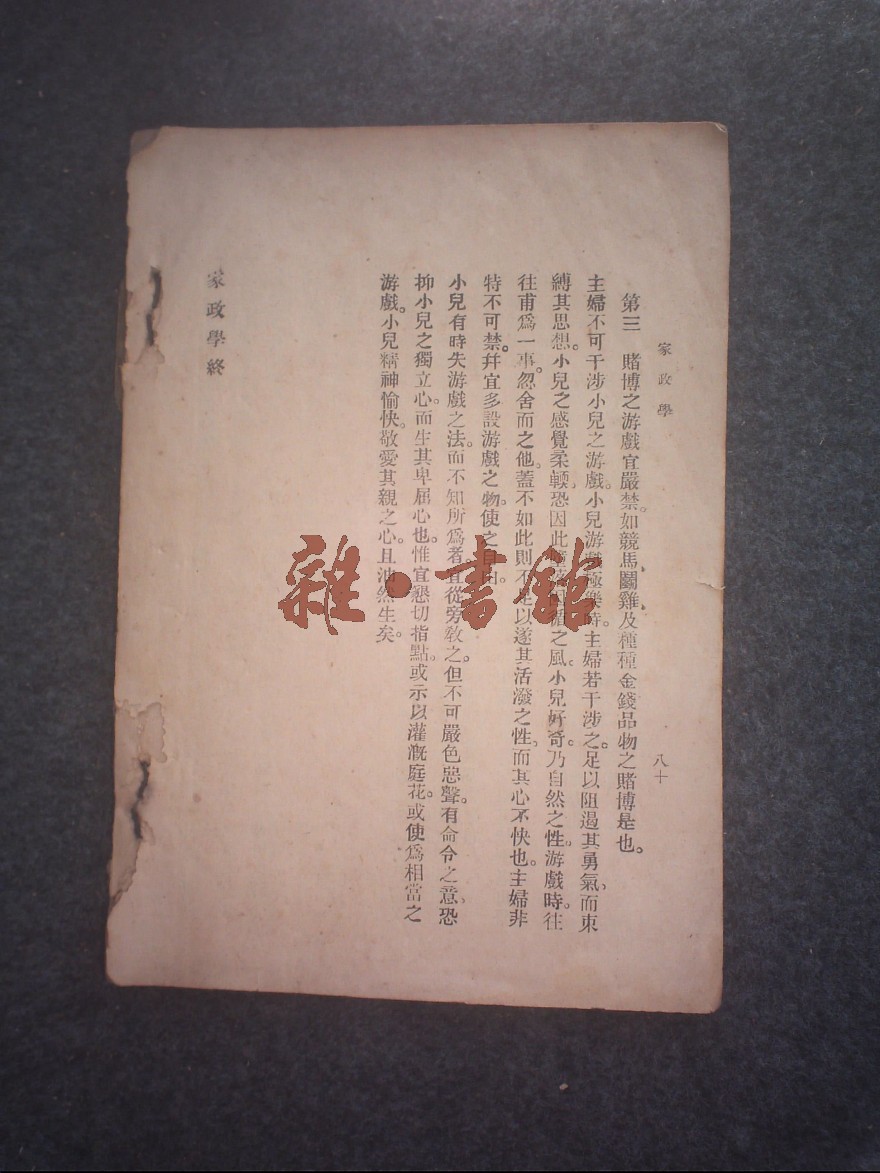 家政學
八十
第三　賭博之游戲宜嚴禁。如競馬、鬭雞、及種種金錢品物之賭博是也。
主婦不可干涉小兒之游戲。小兒游戲極樂時。主婦若干涉之。足以阻遏其勇氣、而束
縛其思想。小兒之感覺柔輭、恐因此之風。小兒好奇。乃自然之性。游戲時。往
往甫爲一事。忽舍而之他。蓋不如此則不足以遂其活潑之性、而其心不快也。主婦非
特不可禁。幷宜多設游戲之物。使之自由。
小兒有時失游戲之法。而不知所爲者宜從旁敎之。但不可嚴色惡聲。有命令之意、恐
抑小兒之獨立心。而生其卑屈心也。惟宜懇切指點。或示以灌漑庭花。或使爲相當之
游戲。小兒精神愉快。敬愛其親之心。且油然生矣。
家政學終
雜·書館